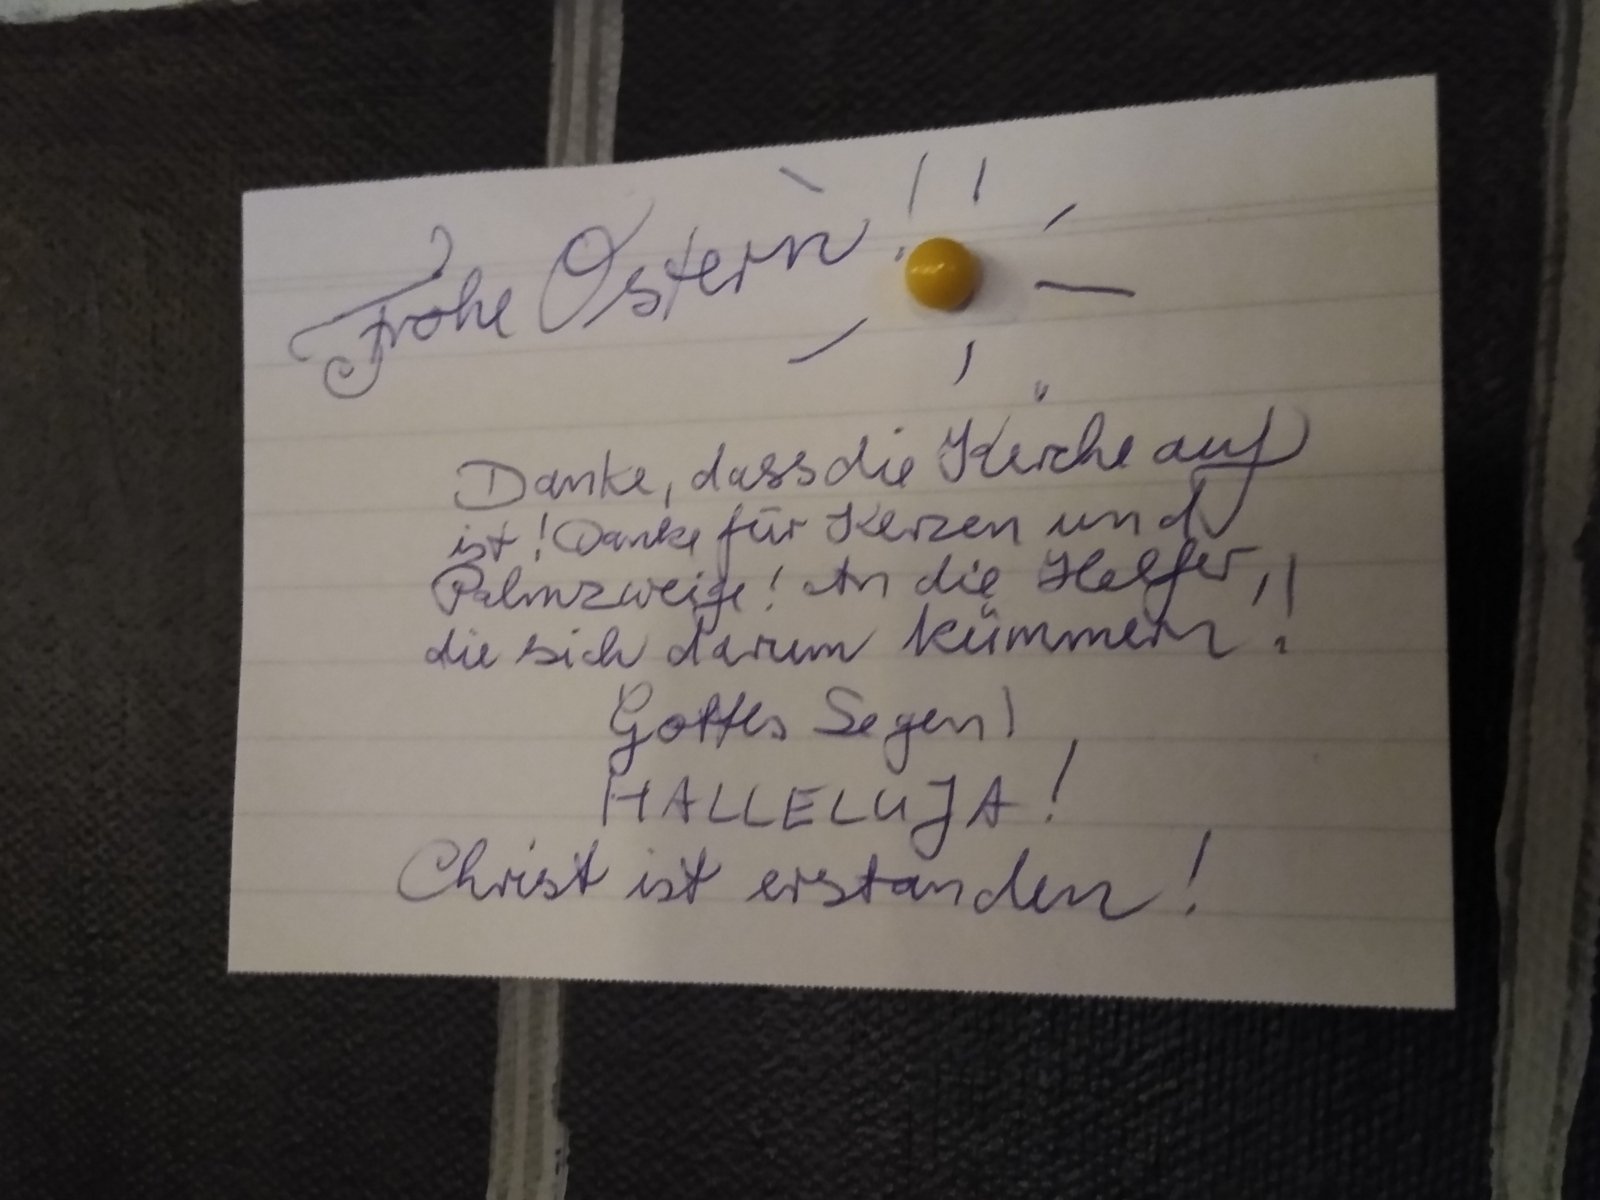 Frohe Ostern!
Danke, dass die Kirche auf
ist! Danke für Kerzen und
Palmzweige! An die Helfer,
die sich darum kümmern!
Gottes Segen!
HALLELUJA!
Christ ist erstanden!